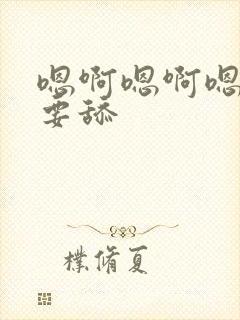 嗯啊嗯啊嗯
要舔
樸脩夏